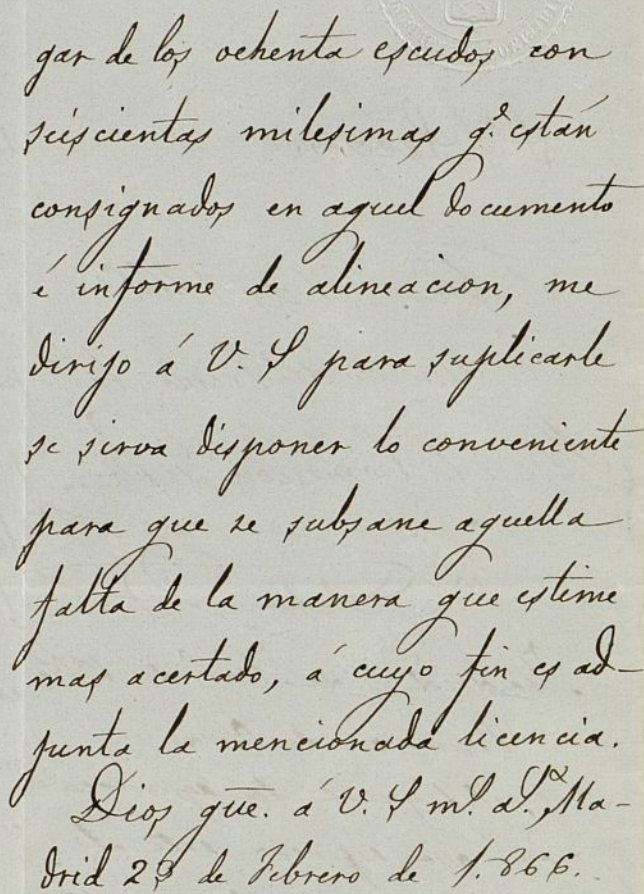 gar de los ochenta escudos con
seiscientas milesimas q.e están
consignados en aquel documento
é informe de alineacion, me
dirijo á V. S para suplicarle
se sirva disponer lo conveniente
para que se subsane aquella
falta de la manera que estime
mas acertado, á cuyo fin es ad-
junta la mencionada licencia.
Dios gūe. á V. S m.s a.s Ma-
drid 23 de Febrero de 1.866.